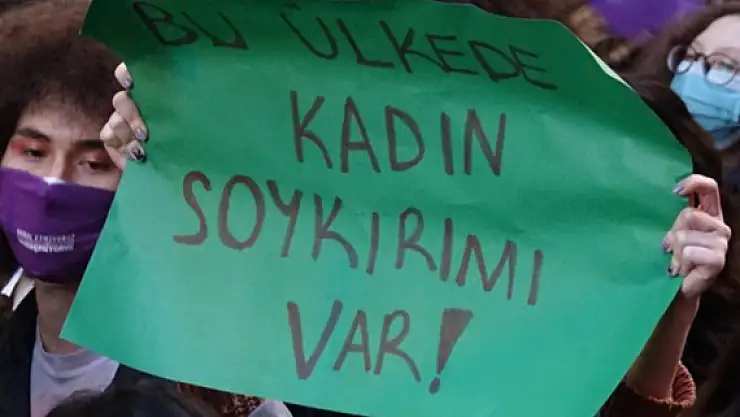 BU ÜLKEDE
KADIN
SOYKIRIMI
VAR!